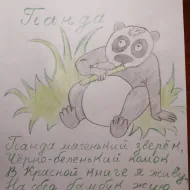 Панда
Панда маленький зверёк,
Чёрно-беленький комок
В Красной книге я живу
На обед бамбук жую